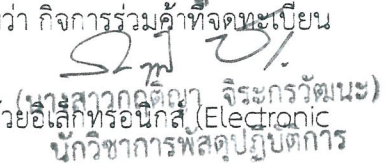 ว่า กิจการร่วมค้าที่จดทะเบียน
(นางสาวกฤติญา จิระกรวัฒนะ)
วยอิเล็กทรอนิกส์ (Electronic
นักวิชาการพัสดุปฏิบัติการ